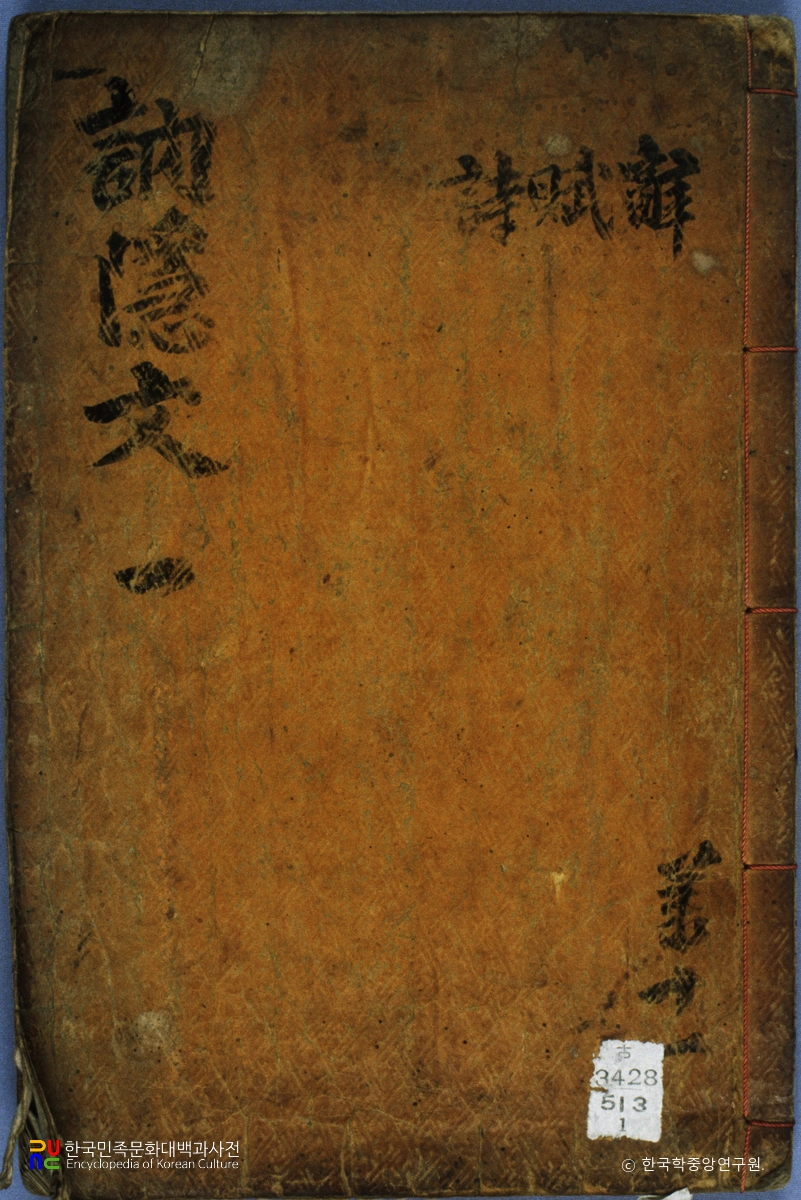 辭賦詩
訥隱文 一
十一
古
3428
513
1
한국민족문화대백과사전
Encyclopedia of Korean Culture
© 한국학중앙연구원